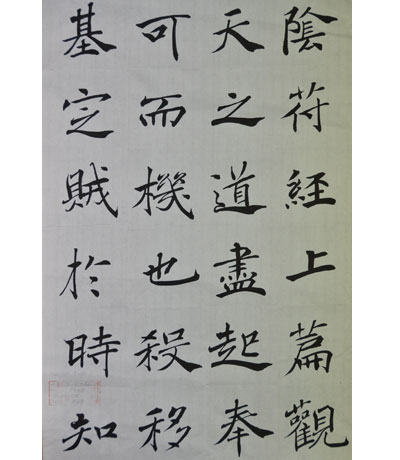 陰符經上篇觀
天之道盡起奉
可而機也殺移
基定賊於時知